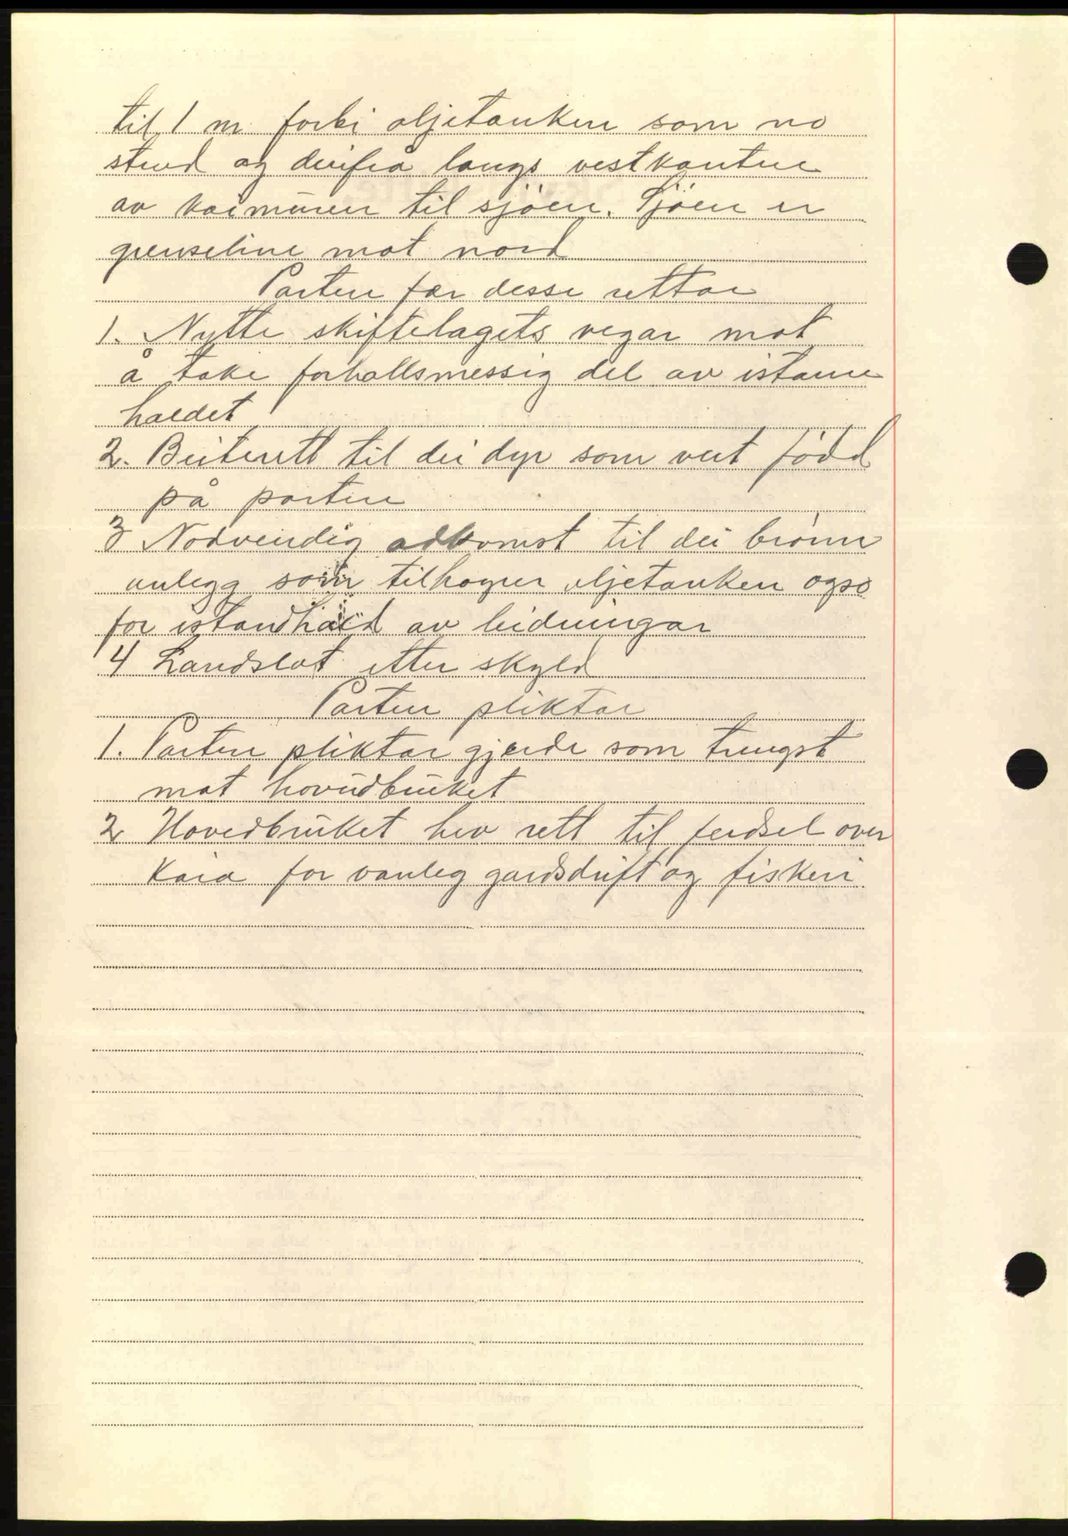 til 1 m forbi oljetanken som no
stend og derifrå langs vestkanten
av kaimuren til sjöen. Sjöen er
grenseline mot nord
Parten fær desse rettar
1. Nytte skiftelagets vegar mot
å take forholdsmessig del av istann
haldet
2. Beiterett til dei dyr som vert fødd
på parten
3 Nödvendig adkomst til dei brönn
anlegg som tilhøyrer oljetanken ogso
for istandhald av leidningar
4 Landslot etter skyld
Parten pliktar
1. Parten pliktar gjerde som trengst
mot hovudbruket
2 Hovedbruket hev rett til ferdsel over
Kaia for vanleg gardsdrift og fiskeri.